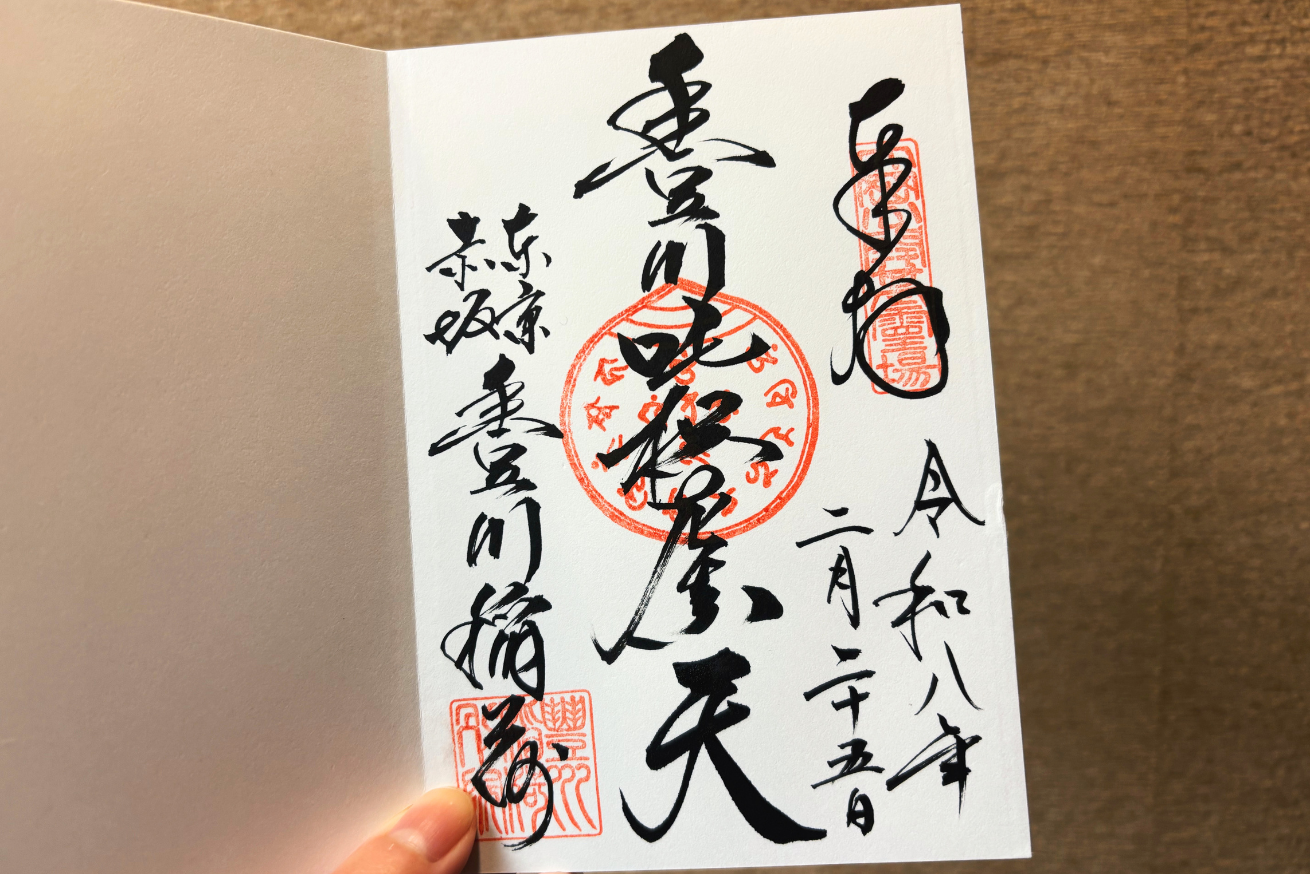 奉拝
令和八年
二月二十五日
豊川吒枳尼真天
東京
赤坂
豊川稲荷